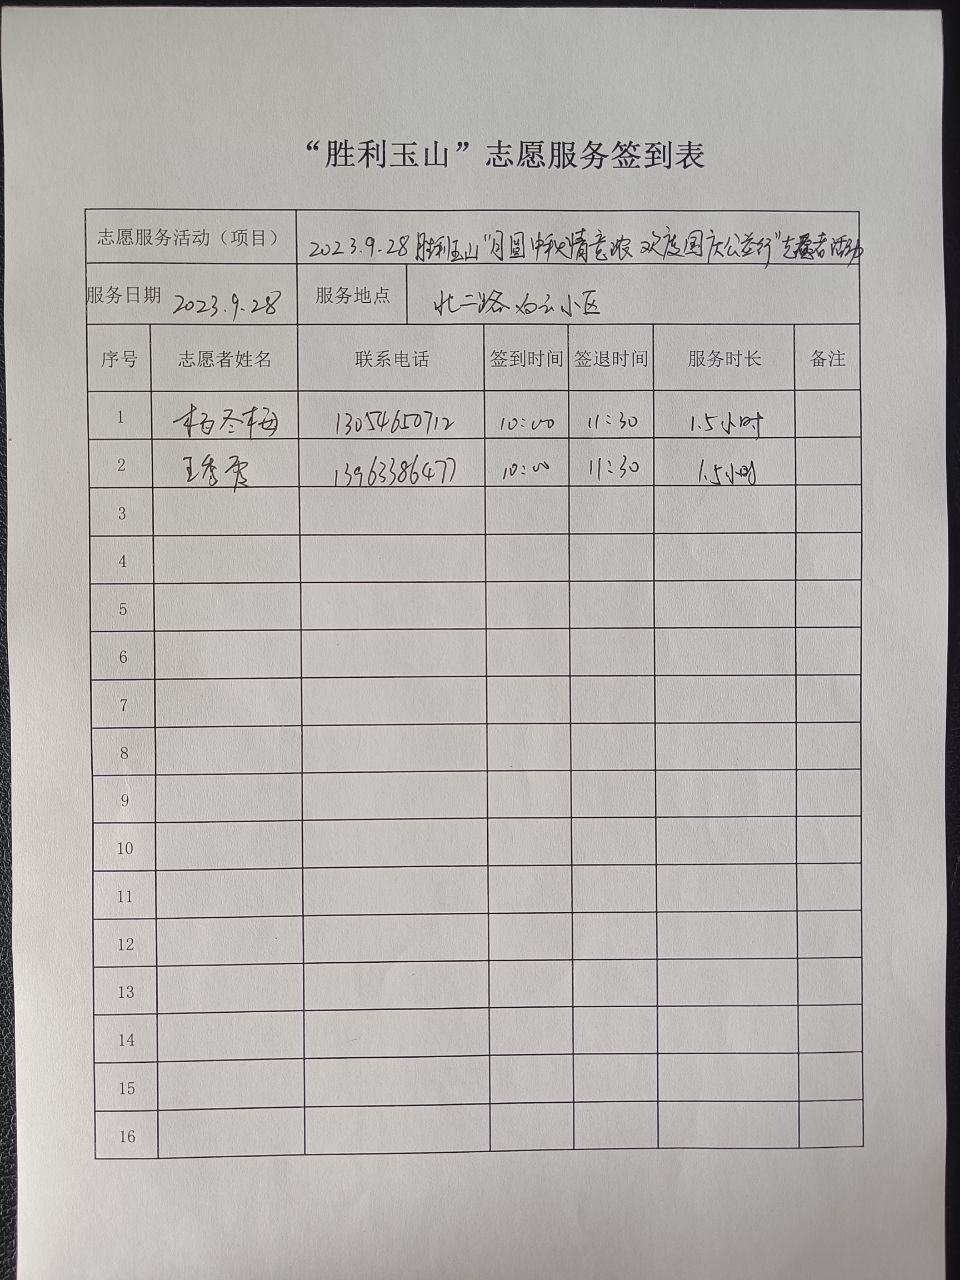 “胜利玉山”志愿服务签到表
志愿服务活动（项目） 2023.9.28 胜利玉山“月圆中秋情意浓 欢度国庆公益行”志愿者活动
服务日期 2023.9.28 服务地点 北二路白云小区
序号 志愿者姓名 联系电话 签到时间 签退时间 服务时长 备注
1 杨冬梅 13054650712 10:00 11:30 1.5小时
2 王秀 13963386477 10:00 11:30 1.5小时
3
4
5
6
7
8
9
10
11
12
13
14
15
16